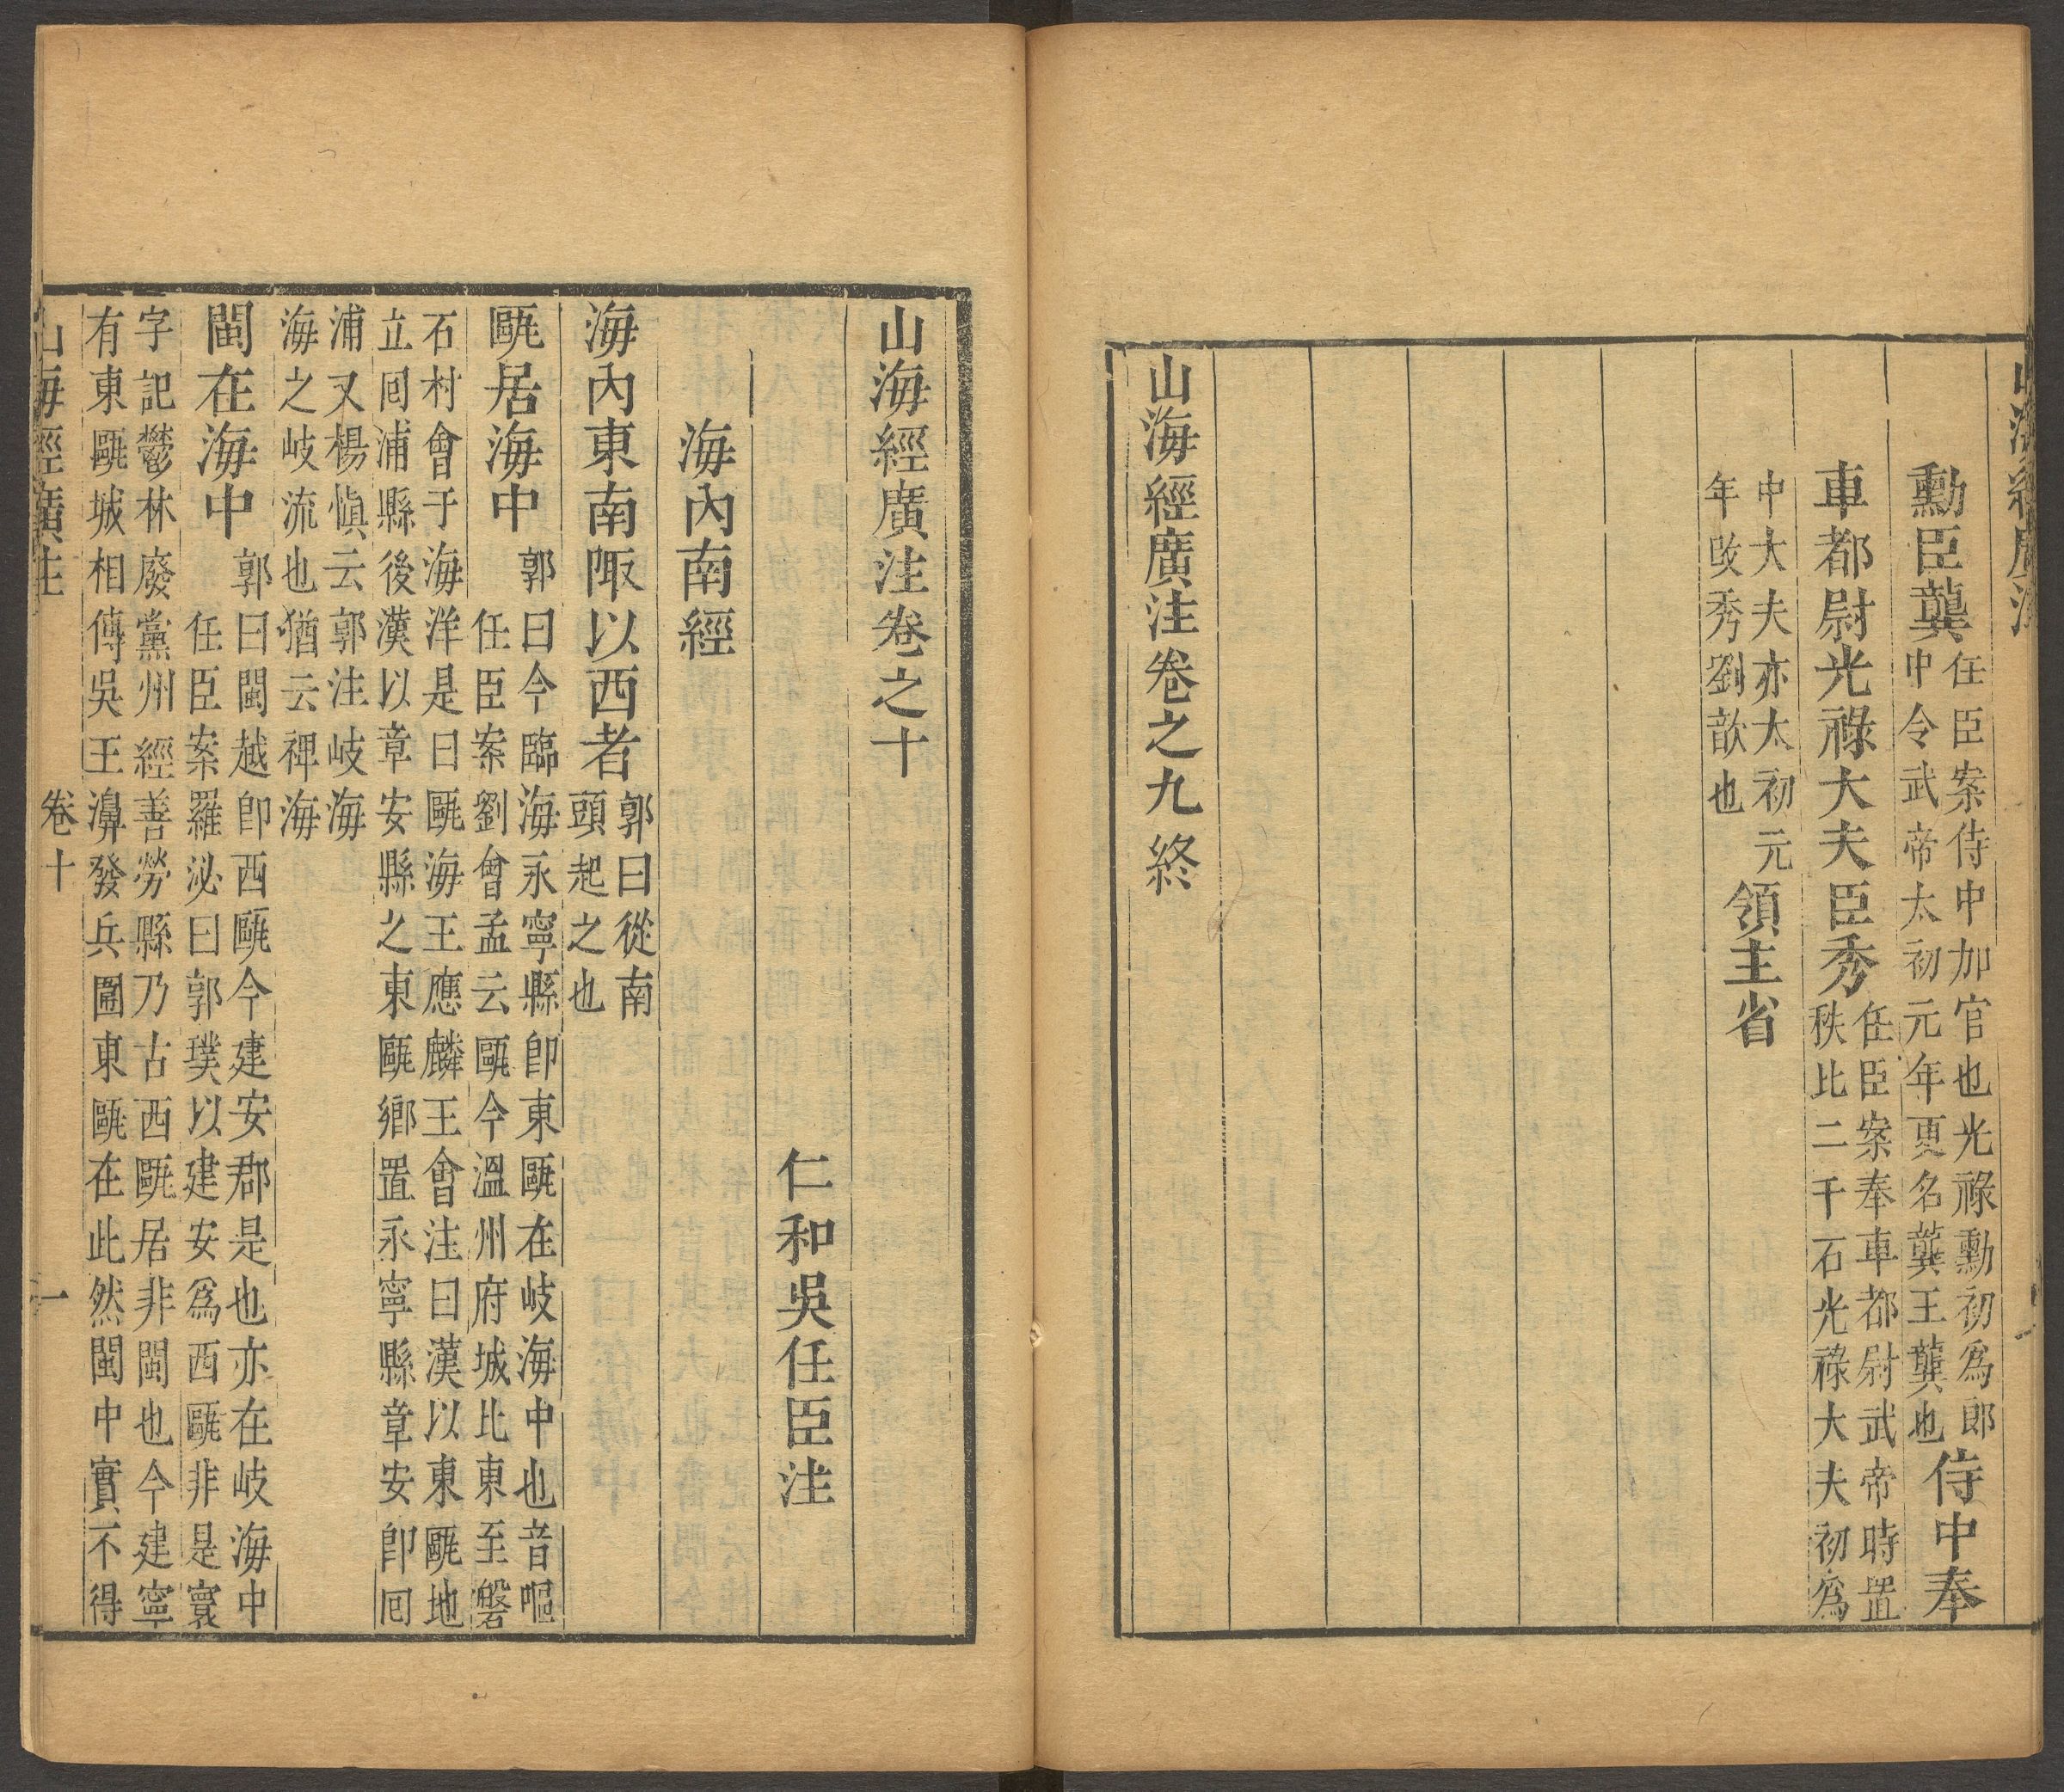 山海經廣注
勳臣龔任臣案侍中加官也光祿勳初爲郎
中令武帝太初元年更名龔王龔也侍中奉
車都尉光祿大夫臣秀任臣案奉車都尉武帝時置
秩比二千石光祿大夫初爲
中大夫亦太初元
年改秀劉歆也領主省
山海經廣注卷之九終
山海經廣注卷之十
仁和吳任臣注
海內南經
海內東南陬以西者郭曰從南
頭起之也
甌居海中郭曰今臨海永寧縣卽東甌在岐海中也音嘔
任臣案劉會孟云甌今溫州府城比東至磐
石村會于海洋是曰甌海王應麟王會注曰漢以東甌地
立囘浦縣後漢以章安縣之東甌鄉置永寧縣章安卽囘
浦又楊愼云郭注岐海
海之岐流也猶云裨海
閩在海中郭曰閩越卽西甌今建安郡是也亦在岐海中
任臣案羅泌曰郭璞以建安爲西甌非是寰
字記鬱林廢黨州經善勞縣乃古西甌居非閩也今建寧
有東甌城相傳吳王濞發兵圍東甌在此然閩中實不得
山海經廣注 卷十 一